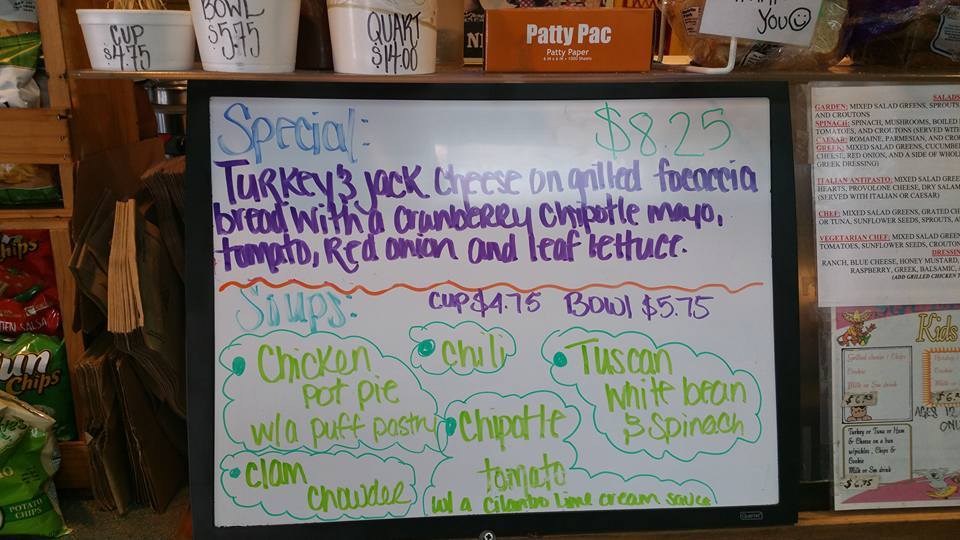 CUP
$4.75
BOWL
$5.75
QUART
$14.00
Patty Pac
Patty Paper
YOU
Special:
$8.25
Turkey & jack cheese on grilled focaccia
bread with a cranberry chipotle mayo,
tomato, Red onion and leaf lettuce.
Soups:
cup $4.75 Bowl $5.75
Chicken
pot pie
w/a puff pastry
chili
Tuscan
white bean
& Spinach
clam
chowder
Chipotle
tomato
w/ a cilantro lime cream sauce
SALADS
GARDEN: MIXED SALAD GREENS, SPROUTS
AND CROUTONS
SPINACH: SPINACH, MUSHROOMS, BOILED
TOMATOES, AND CROUTONS (SERVED WITH
CAESAR: ROMAINE, PARMESAN, AND CRO
GREEK: MIXED SALAD GREENS, CUCUMBE
CHEESE, RED ONION, AND A SIDE OF WHOL
GREEK DRESSING)
ITALIAN ANTIPASTO: MIXED SALAD GREE
HEARTS, PROVOLONE CHEESE, DRY SALAM
(SERVED WITH ITALIAN OR CAESAR)
CHEF: MIXED SALAD GREENS, GRATED CH
OR TUNA, SUNFLOWER SEEDS, SPROUTS, A
VEGETARIAN CHEF: MIXED SALAD GREEN
TOMATOES, SUNFLOWER SEEDS, CROUTON
DRESSIN
RANCH, BLUE CHEESE, HONEY MUSTARD,
RASPBERRY, GREEK, BALSAMIC, A
(ADD GRILLED CHICKEN
Kids
Grilled cheese / Chips
Cookie
Milk or Sm drink
AGES 12
ONL
Turkey or Tuna or Ham
& Cheese on a bun
w/pickles, Chips &
Cookie
Milk or Sm drink
$6.75
hips
un
Chips
POTATO
CHIPS
Quartet